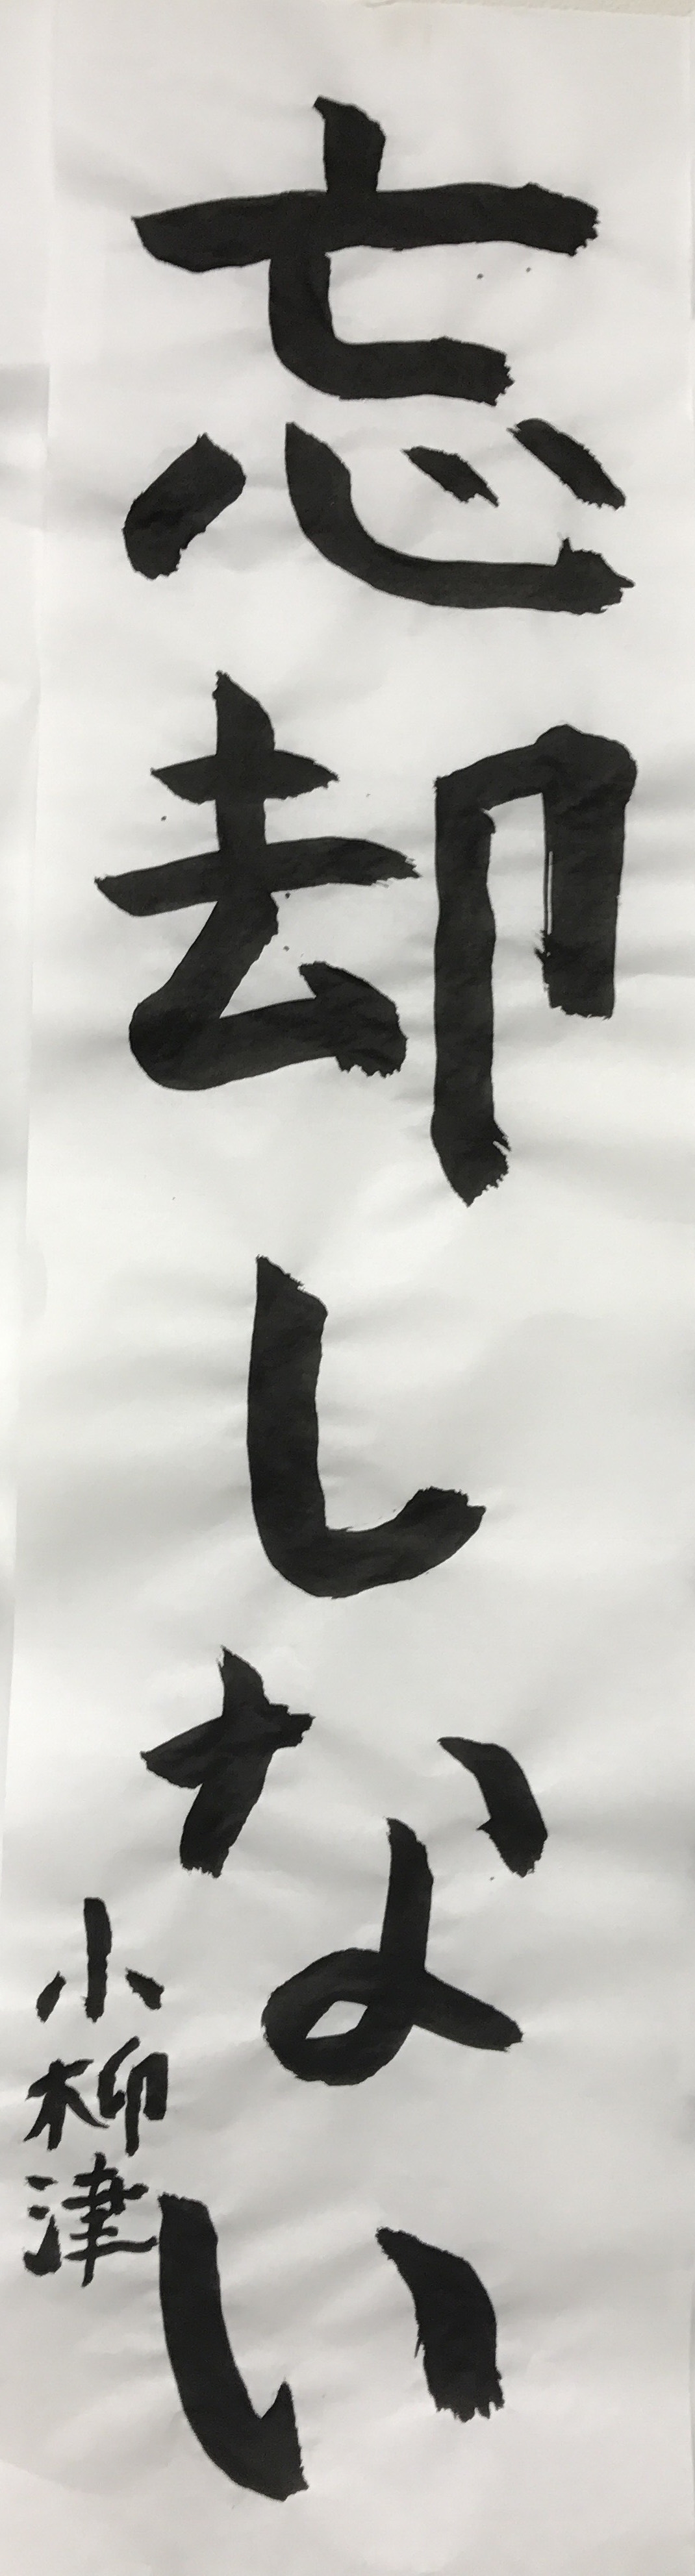 忘却しない
小柳津